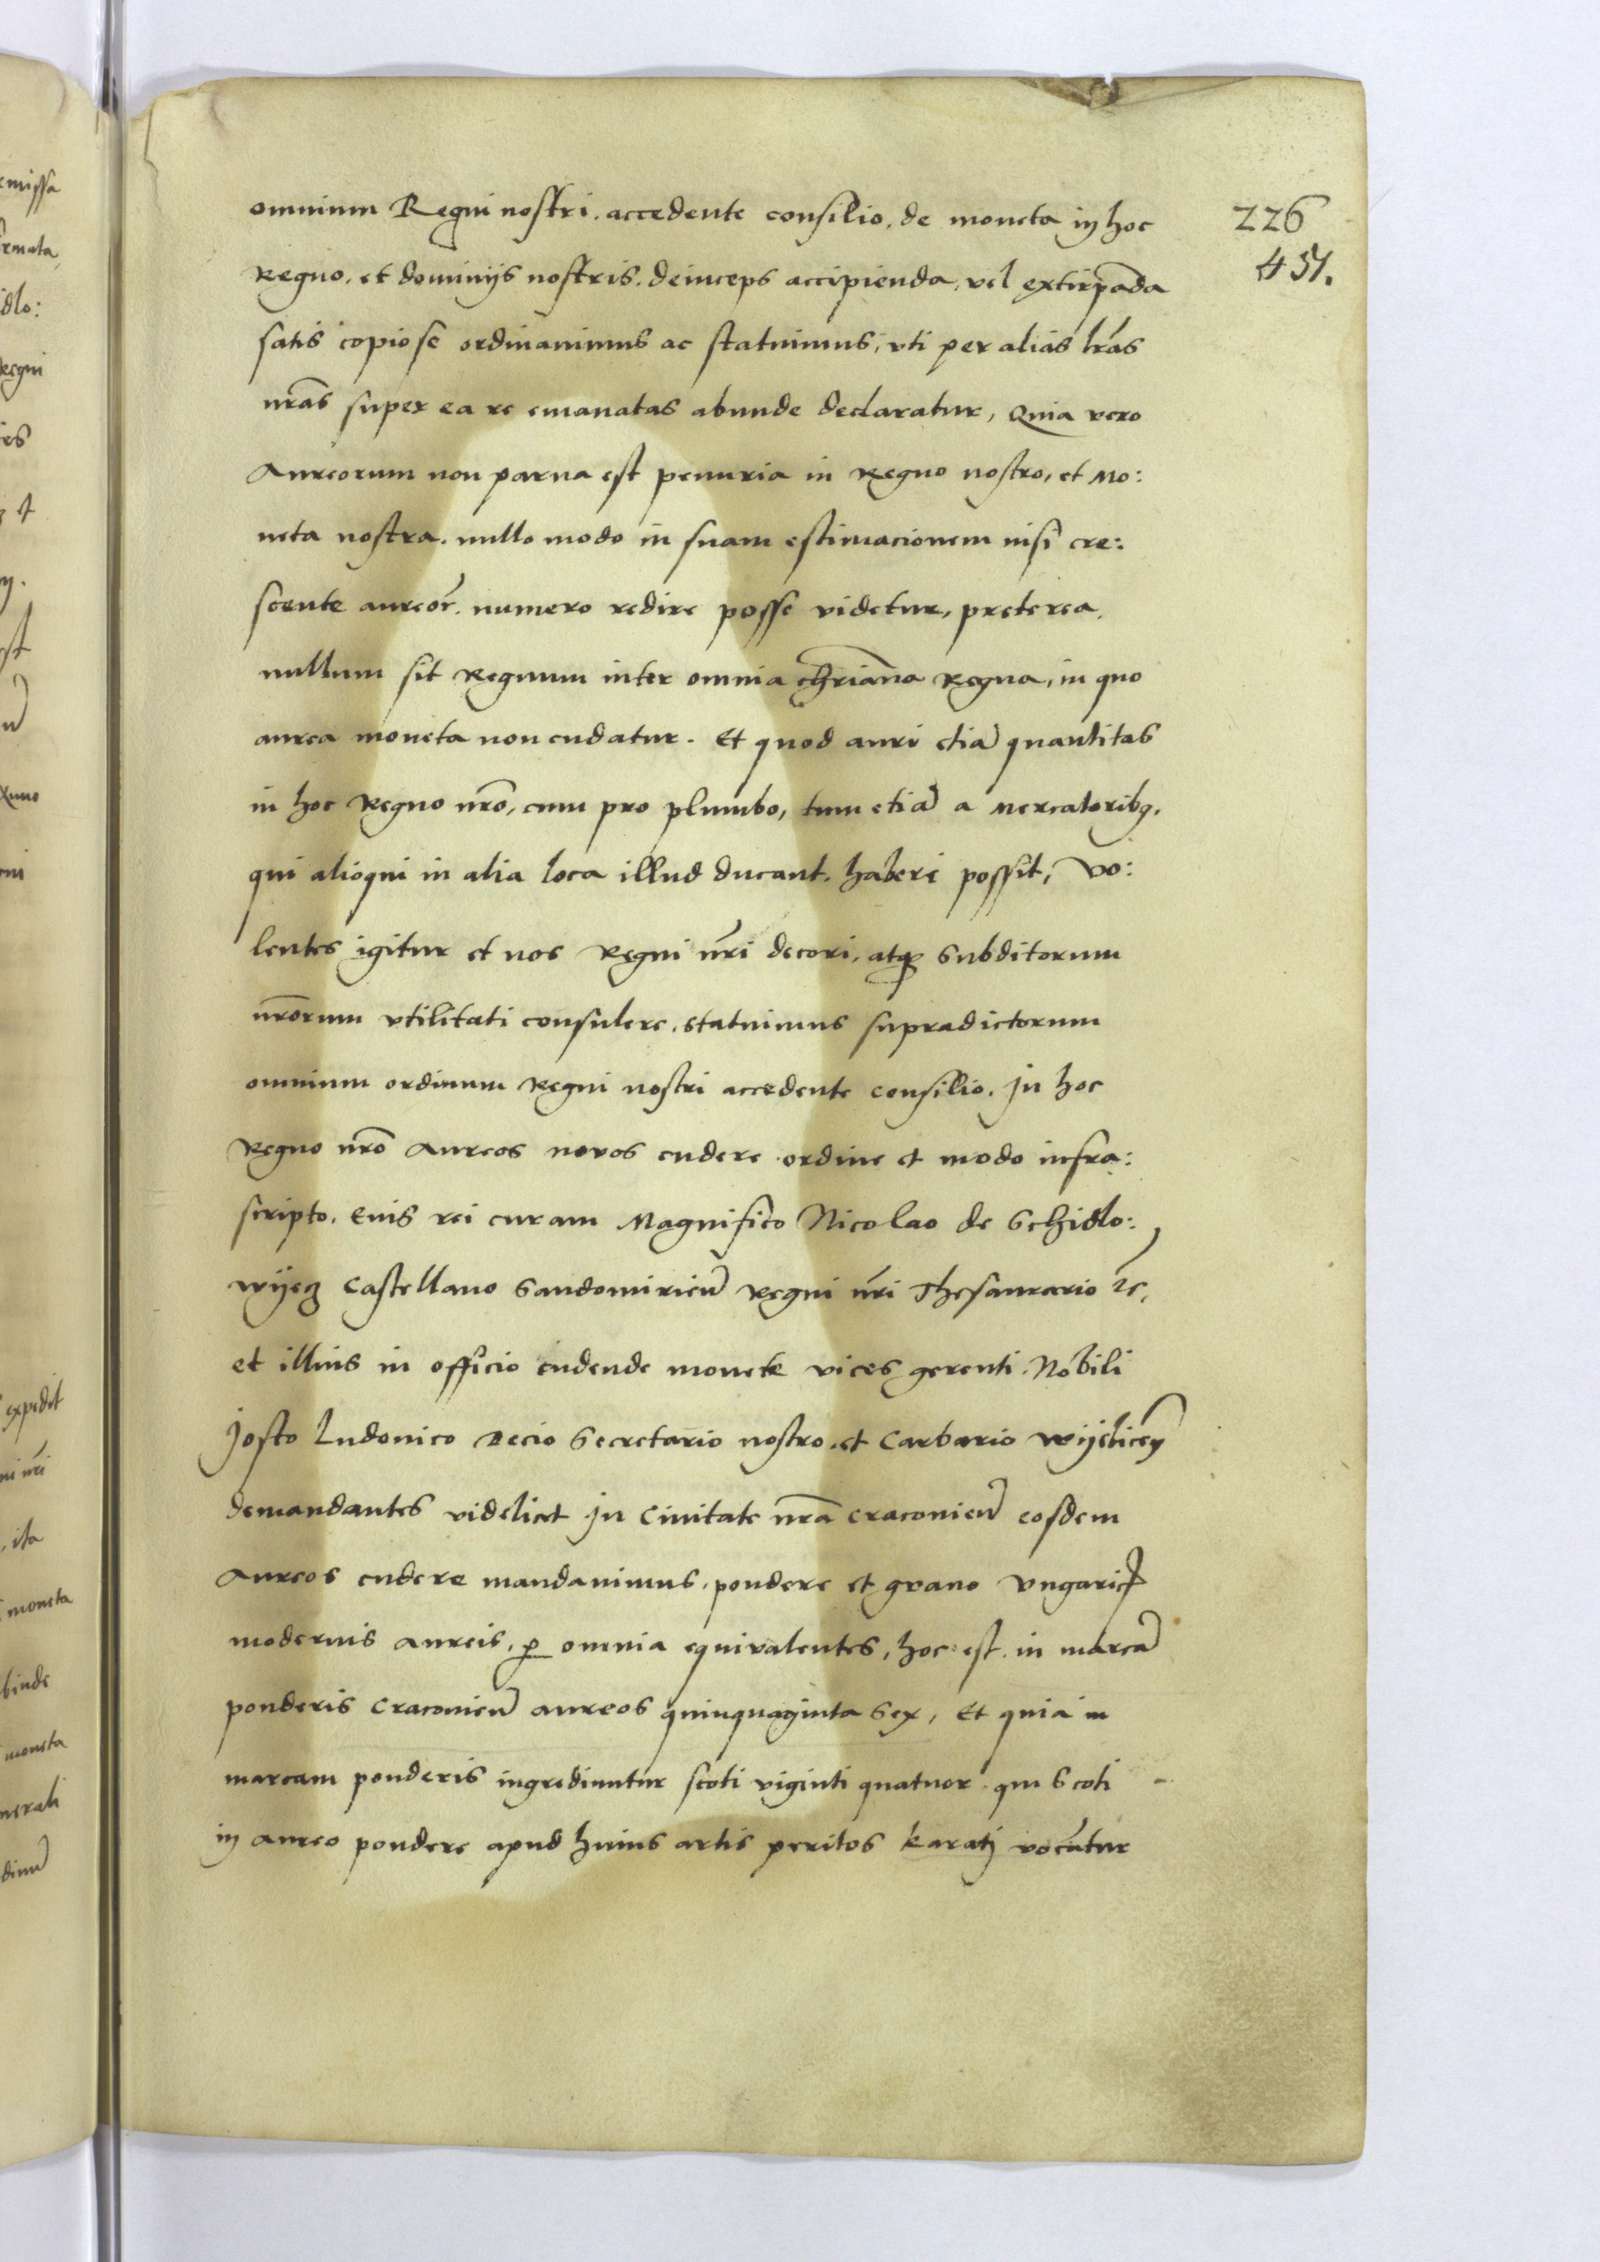 omnium Regni nostri. accedente consilio. de moneta in hoc
226
Regno. et dominijs nostris. deinceps accipienda. vel extirpãda
451.
satis copiose ordinavimus ac statuimus, vti per alias lr̃as
nr̃as super ea re emanatas abunde declaratur, Quia vero
Aureorum non parva est penuria in Regno nostro, et Mo:
neta nostra. nullo modo in suam estimacionem nisi cre:
scente aureor̃. numero redire posse videtur, preterea.
nullum sit Regnum inter omnia chr̃iana Regna, in quo
aurea moneta non cudatur. Et quod auri etiã quantitas
in hoc Regno nr̃o, cum pro plumbo, tum etiã a Mercatoribq.
qui alioqui in alia loca illud ducant, haberi possit, Vo:
lentes igitur et nos Regni nr̃i decori, atq subditorum
nr̃orum vtilitati consulere, statuimus supradictorum
omnium ordinum Regni nostri accedente consilio. In hoc
Regno nr̃o Aureos novos cudere ordine et modo infra:
scripto. Cuis rei curam Magnifico Nicolao de Schidlo:
wijecz Castellano Sandomirieñ Regni nr̃i Thesaurario ꝛc,
et illius in officio cudende monete vices gerenti. Nobili
Josto Ludovico Decio Secretario nostro. et Carbario Wijelicen̄
demandantes videlicet In Civitate nr̃a Cracovieñ eosdem
Aureos cudere mandavimus, pondere et grano Vngaricꝭ
modernis aureis, ꝑ omnia equivalentes, hoc est. in marcã
ponderis Cracovieñ aureos quinquaginta sex, Et quia in
marcam ponderis ingrediuntur scoti viginti quatuor. qui Scoti
in aureo pondere apud huius artis peritos karatj vocãntur